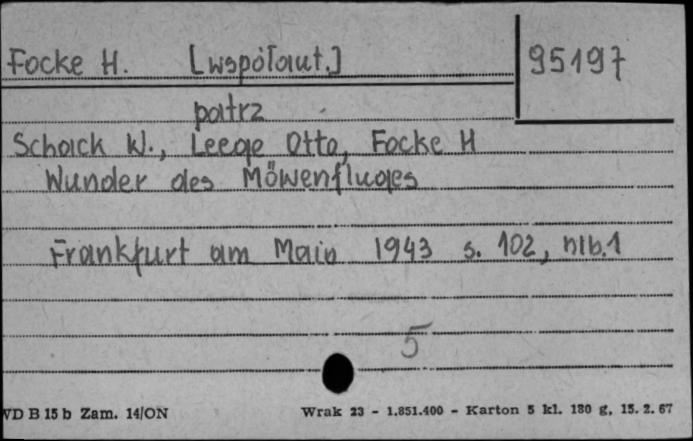 Focke H. [współaut.] 95197
patrz
Schack W., Leege Otto, Focke H
Wunder des Möwenfluges
Frankfurt am Main 1943 s. 102, nlb. 1
5
WD B 15 b Zam. 14/ON Wrak 23 - 1.851.400 - Karton 5 kl. 180 g, 15. 2. 67